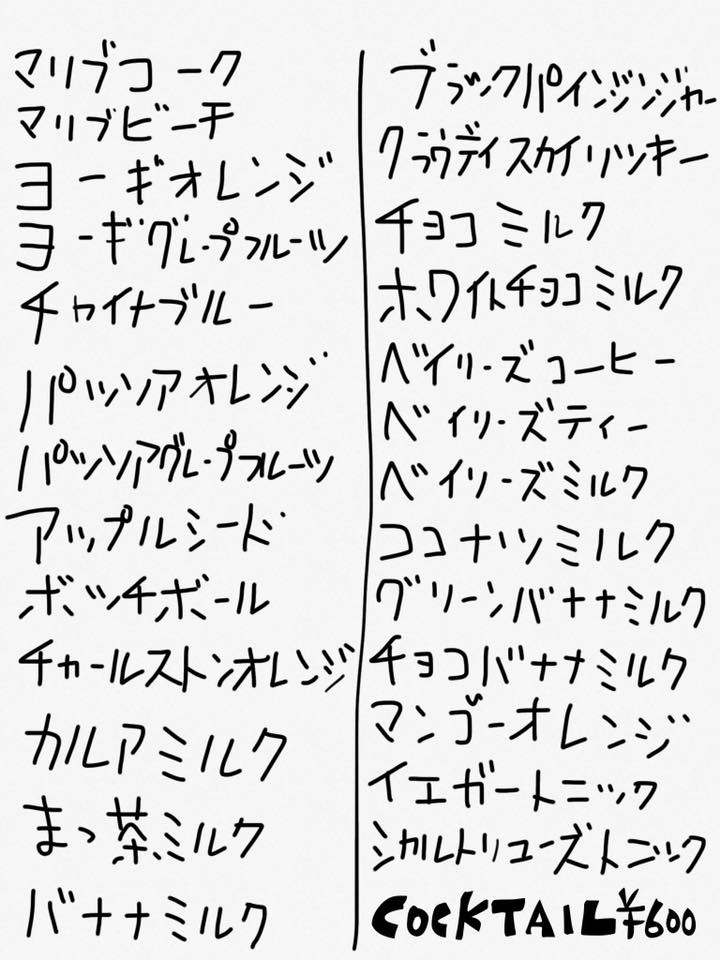 マリブコーク
マリブビーチ
ヨーギオレンジ
ヨーギグレープフルーツ
チャイナブルー
パッソアオレンジ
パッソアグレープフルーツ
アップルシード
ボッチボール
チャールストンオレンジ
カルアミルク
まっ茶ミルク
バナナミルク
ブラックパインジンジャー
クラウディスカイリッキー
チョコミルク
ホワイトチョコミルク
ベイリーズコーヒー
ベイリーズティー
ベイリーズミルク
ココナツミルク
グリーンバナナミルク
チョコバナナミルク
マンゴーオレンジ
イエガートニック
シャルトリューズトニック
COCKTAIL ¥600